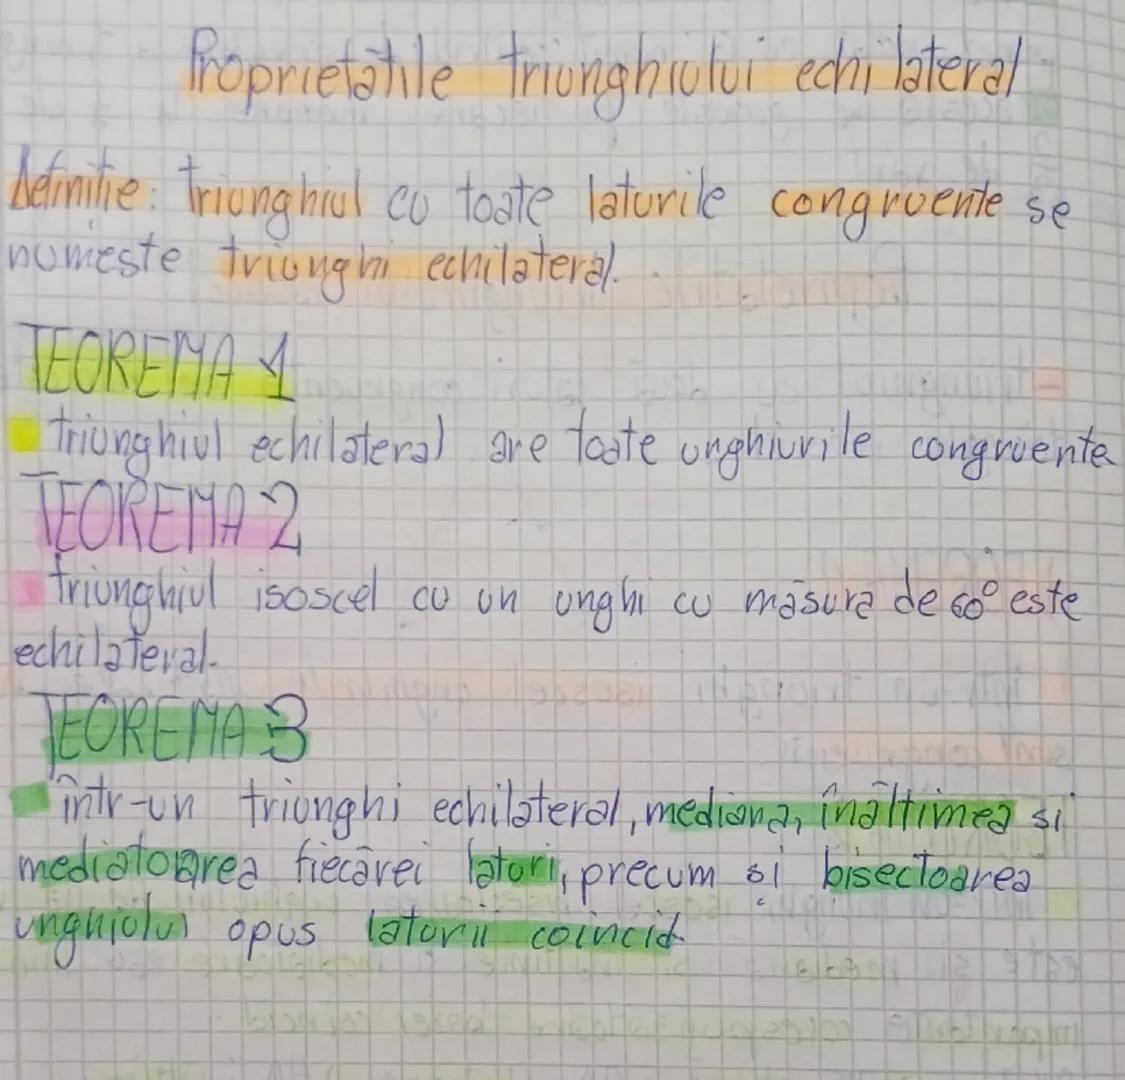 Proprietatile triunghiului echilateral
Definitie: triunghiul cu toate laturile congruente se
numeste triunghi echilateral.
TEOREMA 1
triunghiul echilateral are toate unghiurile congruente
TEOREMA 2
triunghiul isoscel cu un unghi cu măsura de 60° este
echilateral.
TEOREMA 3
într-un triunghi echilateral, mediana, înăltimea si
mediatoarea fiecărei laturi, precum și bisectoarea
unghiului opus laturii coincid.